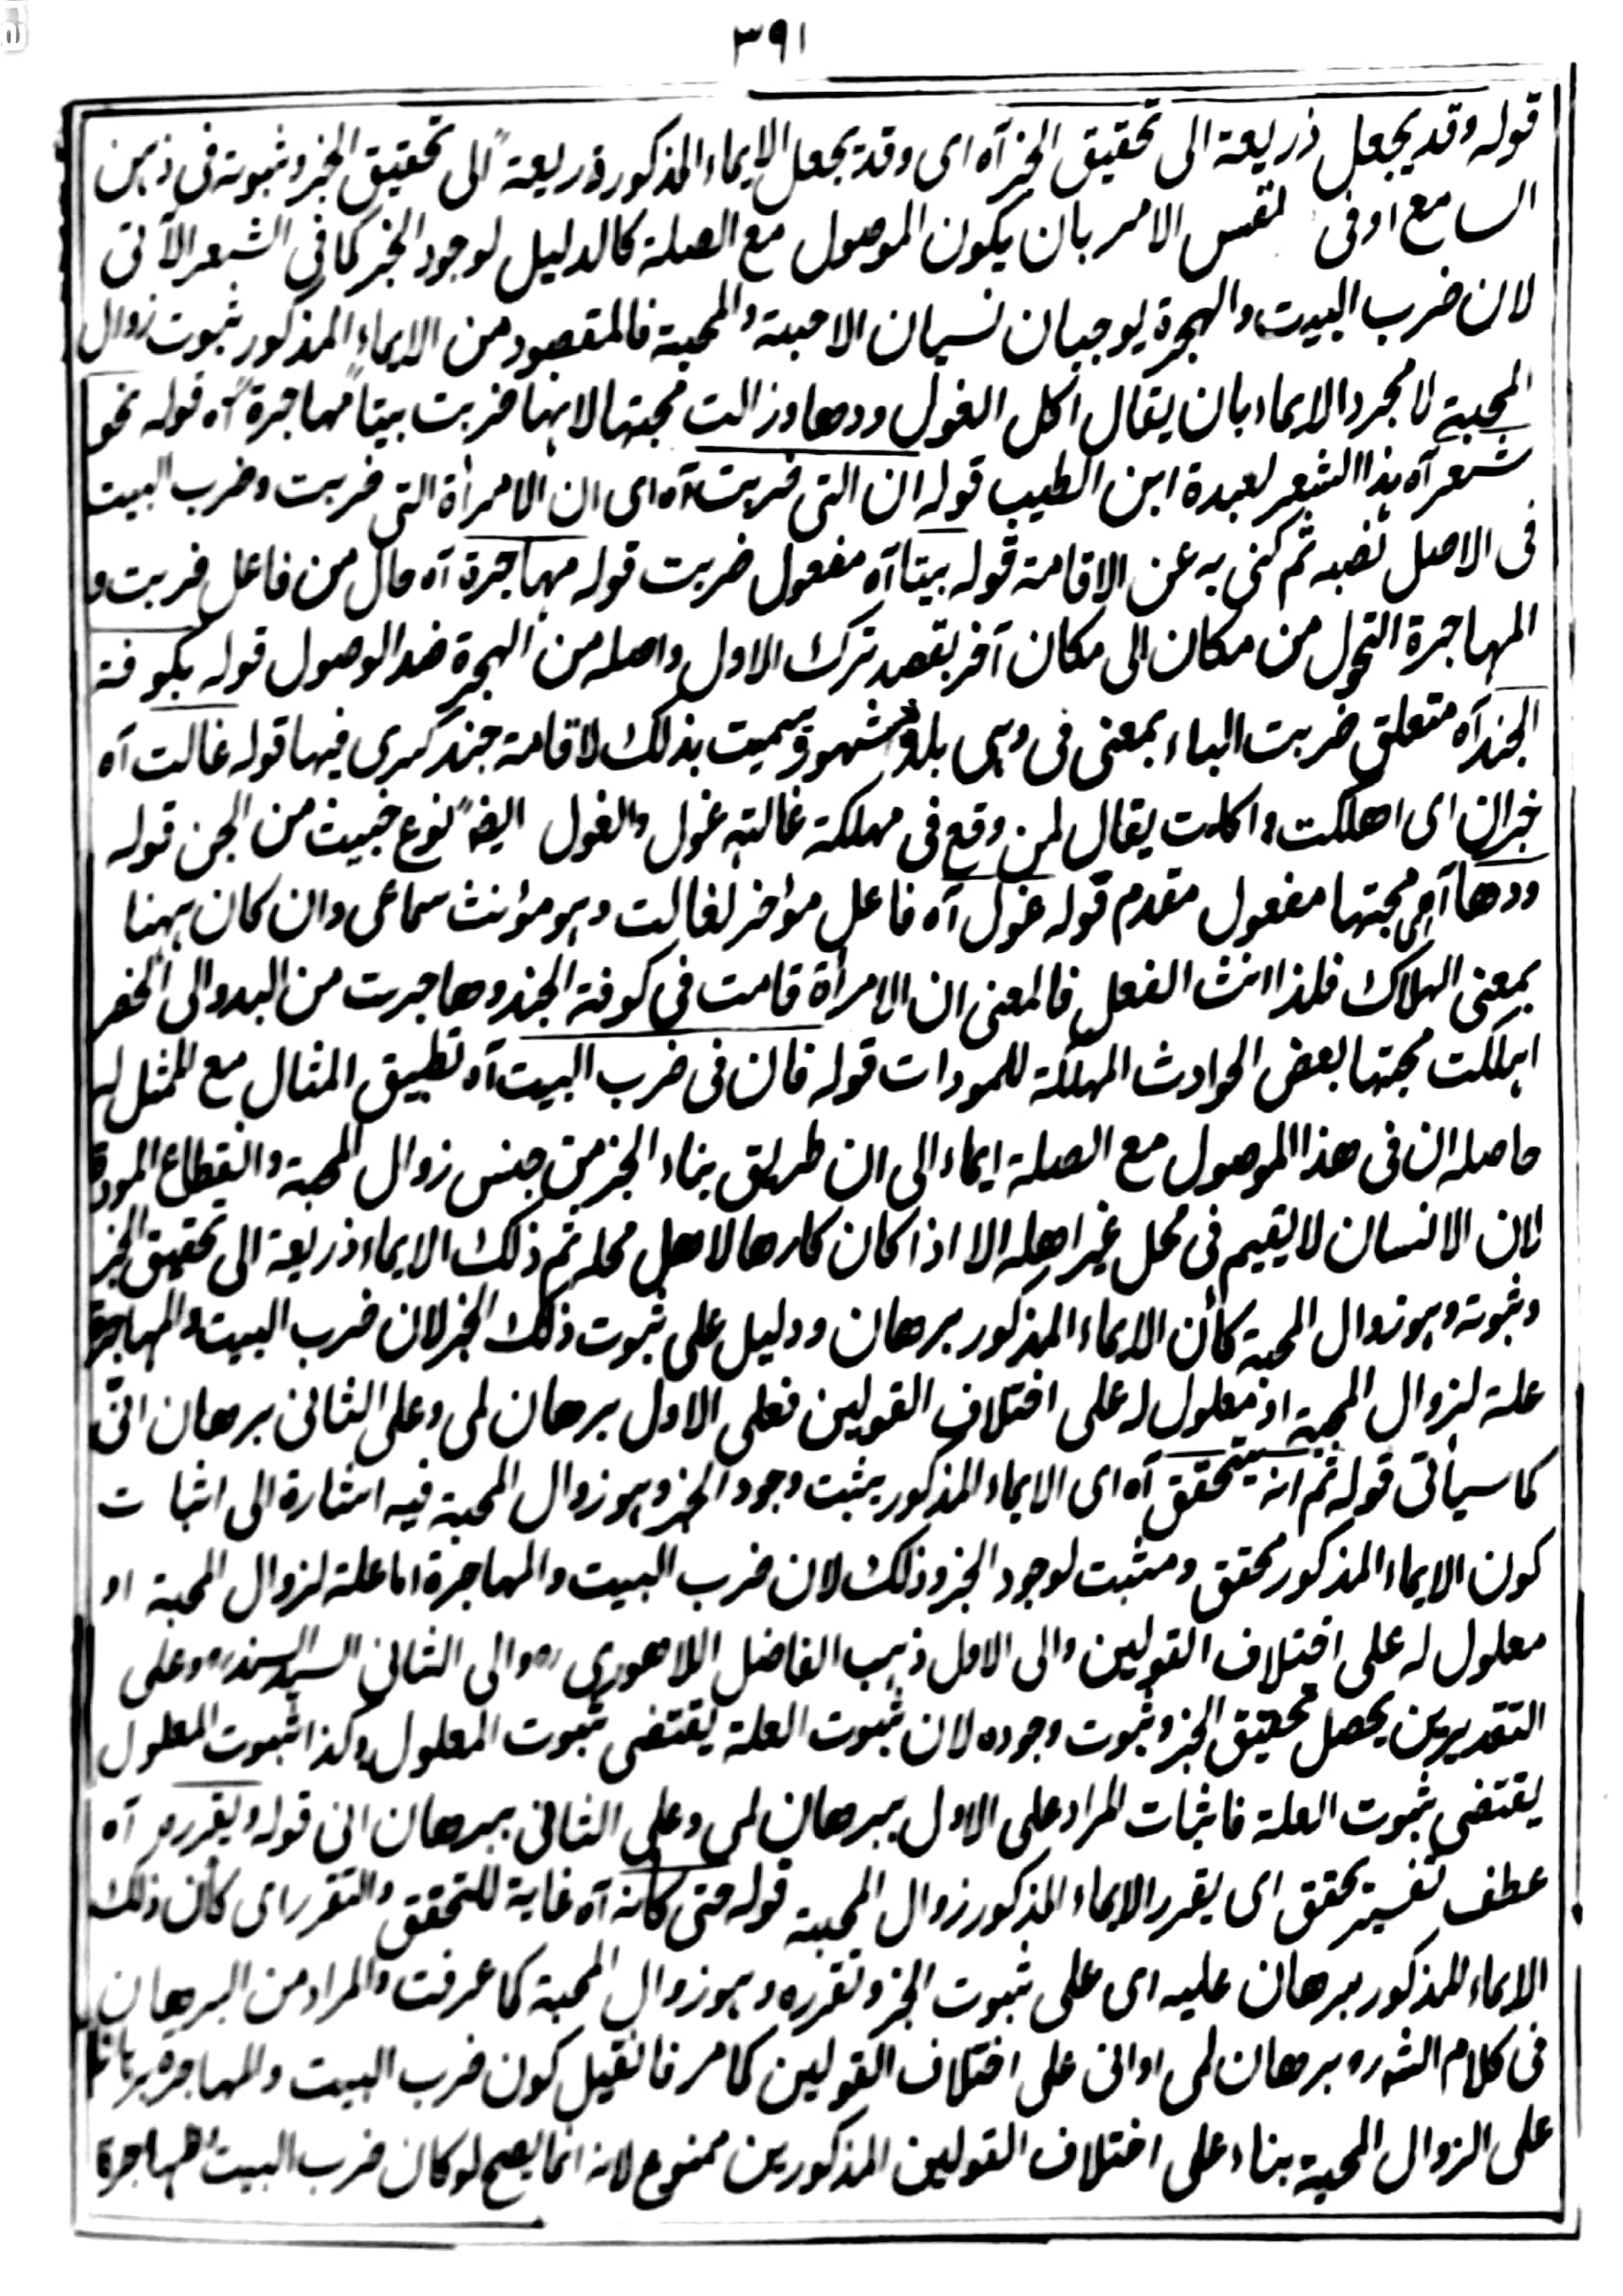 ٣٩١
قوله وقد يجعل ذريعة الى تحقيق الخبر آه اى وقد يجعل الايماء المذكور ذريعة الى تحقيق الخبر وثبوته فى ذهن
السامع او فى نفس الامر بان يكون الموصول مع الصلة كالدليل لوجود الخبر كما فى الشعر الآتى
لان ضرب البيت والهجرة يوجبان نسيان الاحبة والمحبة فالمقصود من الايماء المذكور ثبوت زوال
المحبة لا مجرد الايماء بان يقال اكل الغول ودها وزالت محبتها لانها ضربت بيتا مهاجرة آه قوله نحو
شعر آه هذا الشعر لعبدة ابن الطيب قوله ان التى ضربت آه اى ان الامرأة التى ضربت وضرب البيت
فى الاصل نصبه ثم كنى به عن الاقامة قوله بيتا آه مفعول ضربت قوله مهاجرة آه حال من فاعل ضربت و
المهاجرة التحول من مكان الى مكان آخر بقصد ترك الاول واصله من الهجرة ضد الوصول قوله بكوفة
الجند آه متعلق ضربت الباء بمعنى فى وهى بلدة مشهورة سميت بذلك لاقامة جند كسرى فيها قوله غالت آه
خبر ان اى اهلكت واكلت يقال لمن وقع فى مهلكة غالته غول والغول ايضا نوع خبيث من الجن قوله
ودها آه اى محبتها مفعول مقدم قوله غول آه فاعل مؤخر لغالت وهو مؤنث سماعى وان كان ههنا
بمعنى الهلاك فلذا انث الفعل فالمعنى ان الامرأة قامت فى كوفة الجند وهاجرت من البدو الى الحضر
اهلكت محبتها بعض الحوادث المهلكة للمودات قوله فان فى ضرب البيت آه تطبيق المثال مع الممثل له
حاصله ان فى هذا الموصول مع الصلة ايماء الى ان طريق بناء الخبر من جنس زوال المحبة وانقطاع المودة
لان الانسان لا يقيم فى محل غير اهله الا اذا كان كارها لاهل محله ثم ذلك الايماء ذريعة الى تحقيق الخبر
وثبوته وهو زوال المحبة كأن الايماء المذكور برهان ودليل على ثبوت ذلك الخبر لان ضرب البيت والمهاجرة
علة لزوال المحبة او معلول له على اختلاف القولين فعلى الاول برهان لمى وعلى الثانى برهان انّى
كما سيأتى قوله ثم انه يتحقق آه اى الايماء المذكور يثبت وجود الخبر وهو زوال المحبة فيه اشارة الى اثبات
كون الايماء المذكور محقق ومثبت لوجود الخبر وذلك لان ضرب البيت والمهاجرة اما علة لزوال المحبة او
معلول له على اختلاف القولين والى الاول ذهب الفاضل اللاهورى ره والى الثانى السيد السند ره وعلى
التقديرين يحصل تحقيق الخبر وثبوت وجوده لان ثبوت العلة يقتضى ثبوت المعلول وكذا ثبوت المعلول
يقتضى ثبوت العلة فاثبات المراد على الاول ببرهان لمى وعلى الثانى ببرهان انى قوله ويقرره آه
عطف تفسير يحقق اى يقرر الايماء المذكور زوال المحبة قوله حتى كأنه آه غاية للتحقق والتقرر اى كأن ذلك
الايماء المذكور برهان عليه اى على ثبوت الخبر وتقرره وهو زوال المحبة كما عرفت والمراد من البرهان
فى كلام الشه ره برهان لمى او انى على اختلاف القولين كما مر فان قيل كون ضرب البيت والمهاجرة برهانا
على الزوال المحبة بناء على اختلاف القولين المذكورين ممنوع لانه انما يصح لو كان ضرب البيت والمهاجرة